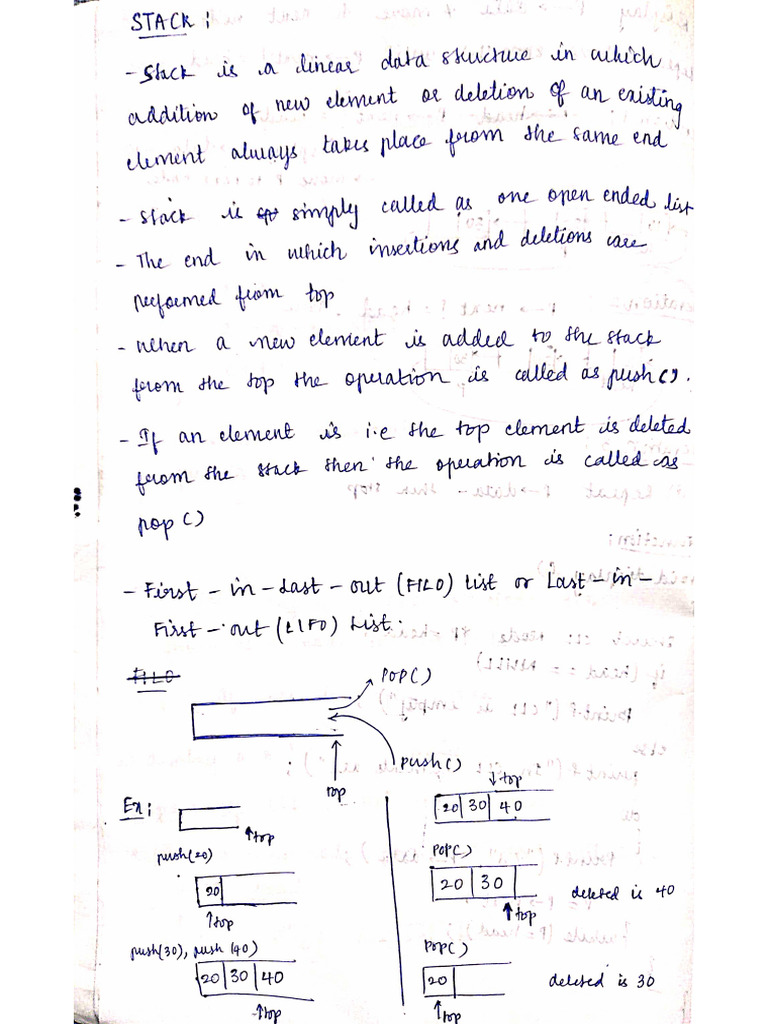 STACK :
- Stack is a linear data structure in which
addition of new element or deletion of an existing
element always takes place from the same end
- Stack is simply called as one open ended list
- The end in which insertions and deletions are
performed from top
- when a new element is added to the stack
from the top the operation is called as push().
- If an element is i.e the top element is deleted
from the stack then the operation is called as
pop ()
- First - in - Last - out (FILO) list or Last - in -
First - out (LIFO) List.
FILO
POP()
push()
top
Ex :
top
push(20)
20
top
push(30), push (40)
20 30 40
top
top
20 30 40
POP()
20 30
deleted is 40
top
POP()
20
deleted is 30
top